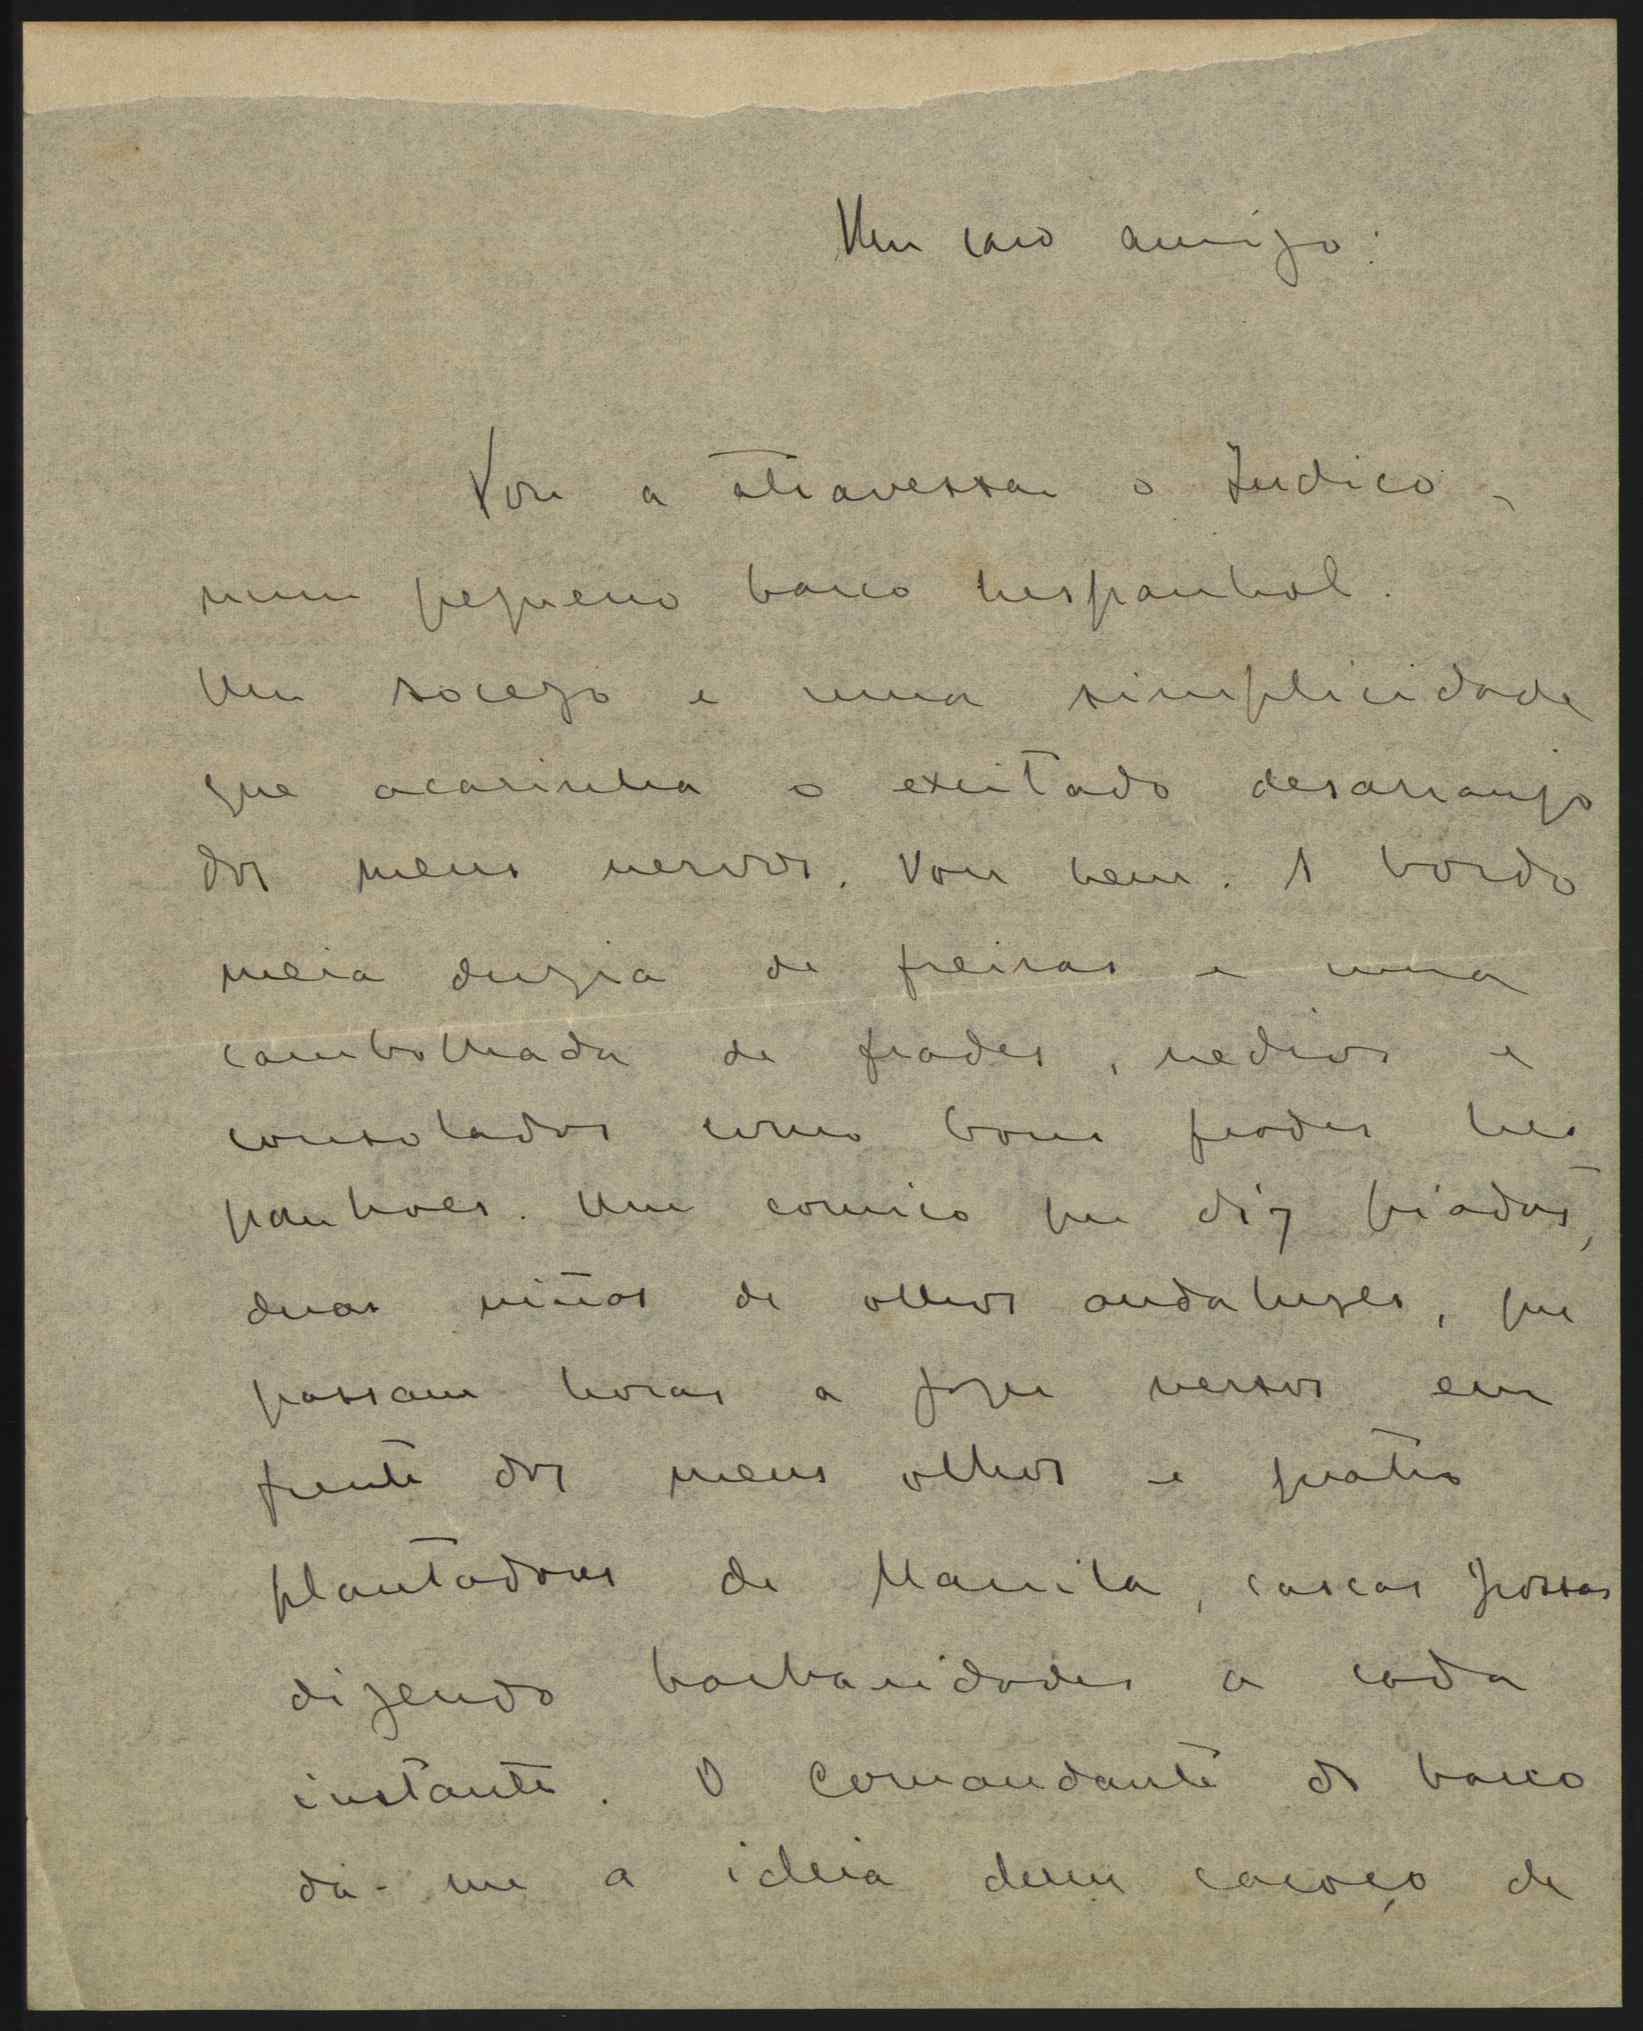 Meu caro amigo:
Vou a atravessar o Indico,
num pequeno barco hespanhol.
Um socego e uma simplicidade
que acarinha o excitado desarranjo
dos meus nervos. Vou bem. A bordo
meia duzia de freiras e uma
cambolhada de frades, nedios e
consolados como bons frades hes
panhoes. Um comico que diz piadas,
duas niñas de olhos andaluzes, que
passam horas a fazer versos em
frente dos meus olhos e quatro
plantadores de Manila, cascas grossas
dizendo barbaridades a cada
instante. O Comandante do barco
dá-me a ideia dum caroço de